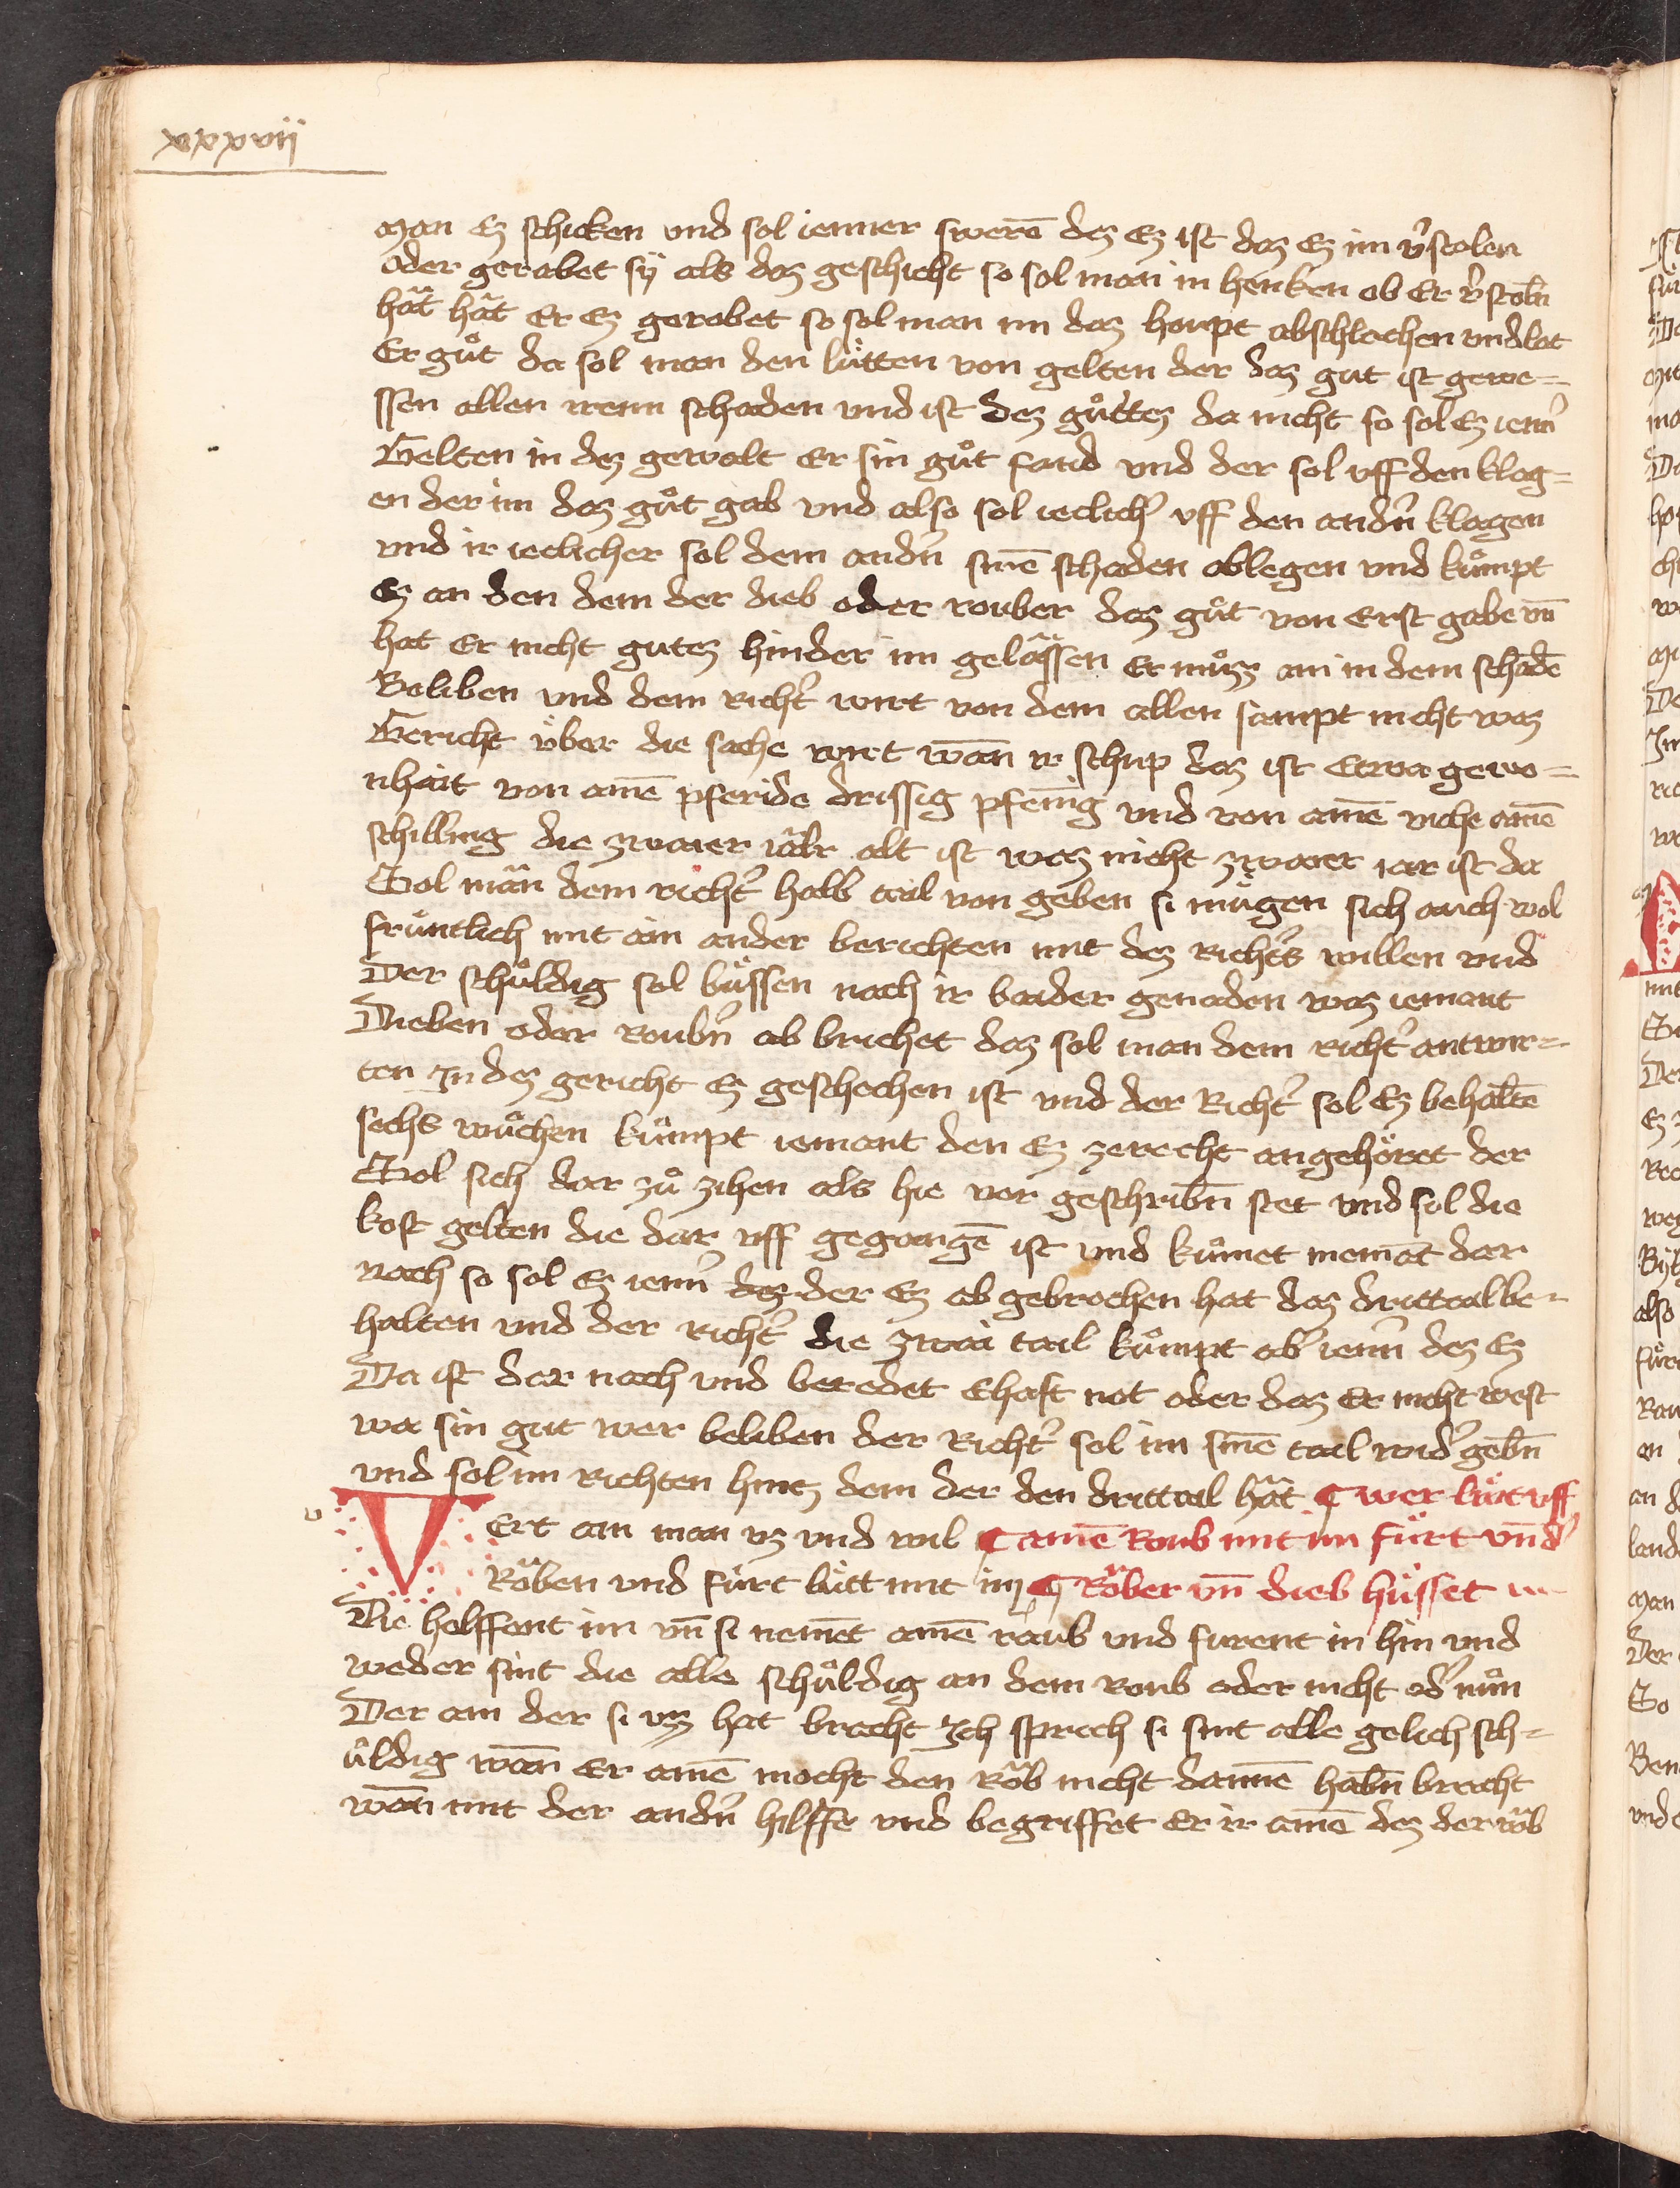 xxxvii
man Ez schicken vnd sol ienner swerē dez Ez ist daz Ez im v̾stolen
oder gerobet sÿ als daz geschicht so sol man in henken ob Er v̾stoln̄
hät hät Er Ez gerobet so sol man im daz houpt abschlachen vnd lat
Er gůt da sol man den lütten von gelten der daz gut ist gewe=
ssen allen irenn schaden vnd ist dez gůttez da nicht so sol Ez ienn̾
Gelten in dez gewalt Er sin gůt fand vnd der sol vff den klag=
en der im daz gůt gab vnd also sol ieclich̾ vff den andn̾ klagen
vnd ir ieclicher sol dem andn̾ sinē schaden ablegen vnd kůmpt
Ez an den dem der dieb oder rouber daz gůt von Erst gabe vn̄
hat Er nicht gutez hinder im gelässen Er můzz ain in dem schadē
Beliben vnd dem richt̾ wirt von dem allen sampt nicht waz
Gericht über die sache wirt wan̄ ir schup daz ist Etwa gewo=
nhait von aimē pferide drissig pfenīg vnd von ainē viche ainē
schilling die zwaier iär alt ist waz nicht zwaier iar ist da
Sol män dem richt̾ halb tail von geben si mügen sich auch wol
früntlich mit ain ander berichten mit dez Richt̾s willen vnd
Der schůldig sol büssen nach ir baider genaden waz iemant
Dieben oder Roubn̾ ab brichet daz sol man dem richt̾ antwur=
ten In dez gericht Ez geschechen ist vnd der Richt̾ sol Ez behaltē
sechs wůchen kůmpt iemant den Ez zerecht angehöret der
Sol sich dar zů zihen als hie vor geschribn̄ stet vnd sol die
kost gelten die dar vff gegangē ist vnd kůmet niemāt dar
nach so sol Ez ienn̾ dez der Ez ab gebrochen hat daz drittail be=
halten vnd der richt̾ die zwai tail kůmpt ab̾ ienn̾ dez Ez
Da ist dar nach vnd beredet Ehaft not oder daz Er nicht west
wa sin gut wer beliben der Richt̾ sol im sinē tail wid̾ gebn̄
vnd sol im Richten hintz dem der den drittail hät ¶ wer lüt vff
v
VErt ain man vz vnd wil ¶ ainē Roub mit im fürt vnd̾
Röben vnd fürt lütt mit im ¶ Röber vn̄ dieb hüsset
Die helffent im vn̄ si nemēt ainē raub vnd fürent in hin vnd
weder sint die alle schůldig an dem Roub oder nicht od̾ nůn
Der ain der si vzz hat bracht Ich sprech si sint alle gelich sch=
ůldig wan̄ Er ainē mocht den Röb nicht dannē habn̄ bracht
wan̄ mit der andn̾ hilffe vnd begriffet Er ir ainē dez der röb